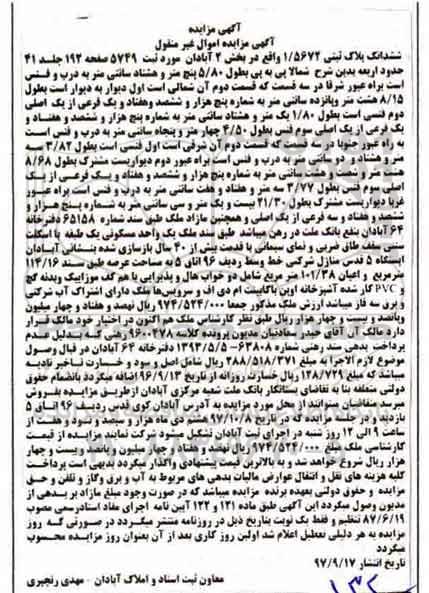 آگهی مزایده
آگهی مزایده اموال غیر منقول
ششدانگ پلاک ثبتی ۱/۵۶۷۲ واقع در بخش ۲ آبادان مورد ثبت ۵۷۴۹ صفحه ۱۹۲ جلد ۴۱
حدود اربعه بدین شرح شمالا پی به پی بطول ۵/۸۰ پنج متر و هشتاد سانتی متر به درب و فنس
است براه عبور شرقا در سه قسمت که قسمت دوم آن شمالی است اول دیوار به دیوار است بطول
۸/۱۵ هشت متر وپانزده سانتی متر به شماره پنج هزار و ششصد وهفتاد و یک فرعی از یک اصلی
دوم فنسی است بطول ۱/۸۰ یک متر و هشتاد سانتی متر به شماره پنج هزار و ششصد و هفتاد و
یک فرعی از یک اصلی سوم فنس بطول ۴/۵۰ چهار متر و پنجاه سانتی متر به درب و فنس است
به راه عبور جنوبا در سه قسمت که قسمت دوم آن شرقی است اول فنسی است بطول ۳/۸۲ سه
متر و هشتاد و دو سانتی متر به درب و فنس است براه عبور دوم دیواریست مشترک بطول ۸/۶۸
هشت متر و شصت و هشت سانتی متر به شماره پنج هزار و ششصد و هفتاد و یک فرعی از یک
اصلی سوم فنس بطول ۳/۷۷ سه متر و هفتاد و هفت سانتی متر به درب و فنس است براه عبور
غربا دیواریست مشترک بطول ۲۱/۳۰ بیست و یک متر و سی سانتی متر به شماره پنج هزار و
ششصد و هفتاد و سه فرعی از یک اصلی و همچنین مازاد ملک طبق سند شماره ۶۵۱۵۸ دفترخانه
۶۴ آبادان بنفع بانک ملت در رهن میباشد طبق سند ملک یک واحد مسکونی یک طبقه با اسکلت
سنتی سقف طاق ضربی و نمای سیمانی با قدمت بیش از ۴۰ سال بازسازی شده بنشانی آبادان
ایستگاه ۵ قدس منازل شرکتی خط وسط ردیف ۹۶ اتاق ۵ به مساحت عرصه طبق سند ۱۱۴/۱۶
مترمربع و اعیان ۱۰۱/۳۸ متر مربع شامل دو خواب هال و پذیرایی با هم کف موزاییک وبدنه گچ
و PVC کار شده آشپزخانه اوپن باکابینت ام دی اف و سرویس‌ها ملک دارای اشتراک آب شرکتی
و برق سه فاز میباشد ارزش ملک مذکور جمعا ۹۷۴/۵۲۴/۰۰۰ ریال نهصد و هفتاد و چهار میلیون
وپانصد و بیست و چهار هزار ریال طبق نظر کارشناسی ملک هم اکنون در اختیار خود مالک قرار
دارد مالک آن آقای حیدر سعادتیان مدیون پرونده کلاسه ۹۶۰۰۴۷۸ زمی که بدلیل عدم
پرداخت بدهی سند رهنی شماره ۶۳۸۰۸-۱۳۹۳/۵/۵ دفترخانه ۶۴ آبادان در قبال وصول
موضوع لازم الاجرا به مبلغ ۲۸۸/۵۱۸/۳۷۱ ریال شامل اصل و سود و خسارت تاخیر تادیه
میباشد که مبلغ ۱۲۸/۷۲۹ ریال خسارت روزانه از تاریخ ۹۶/۹/۱۳ اضافه میگردد بانضمام حقوق
دولتی متعلقه بنا به تقاضای بستانکار بانک ملت شعبه مرکزی آبادان از طریق مزایده بفروش
میرسد متقاضیان میتوانند از محل مورد مزایده به آدرس آبادان کوی قدس ردیف ۹۶ اتاق ۵
بازدید و در جلسه مزایده که در تاریخ ۹۷/۱۰/۸ هشتم دی ماه هزار و سیصد و نود و هفت از
ساعت ۹ الی ۱۲ روز شنبه در اجرای ثبت آبادان تشکیل میشود شرکت نمایند مزایده از قیمت
کارشناسی ملک مبلغ ۹۷۴/۵۲۴/۰۰۰ ریال نهصد و هفتاد و چهار میلیون وپانصد و بیست و چهار
هزار ریال شروع خواهد شد و به بالاترین قیمت پیشنهادی واگذار میگردد بدیهی است پرداخت
کلیه هزینه های نقل و انتقال عوارض مالیات بدهی های مربوط به آب و برق وگاز و تلفن و حق
مزایده و حقوق دولتی بعهده برنده مزایده میباشد که در صورت وجود مبلغ مازاد بر بدهی از
مدیون وصول میگردد این آگهی طبق ماده ۱۲۱ و ۱۲۲ آیین نامه اجرای مفاد اسنادرسمی مصوب
۸۷/۶/۱۹ تنظیم و فقط یک نوبت بتاریخ ذیل در روزنامه منتشر میگردد در صورتی که روز
مزایده به هر دلیلی تعطیل اعلام شد اولین روز کاری بعد از آن بعنوان روز مزایده محسوب
میگردد
تاریخ انتشار ۹۷/۹/۱۷
معاون ثبت اسناد و املاک آبادان - مهدی رنجبری